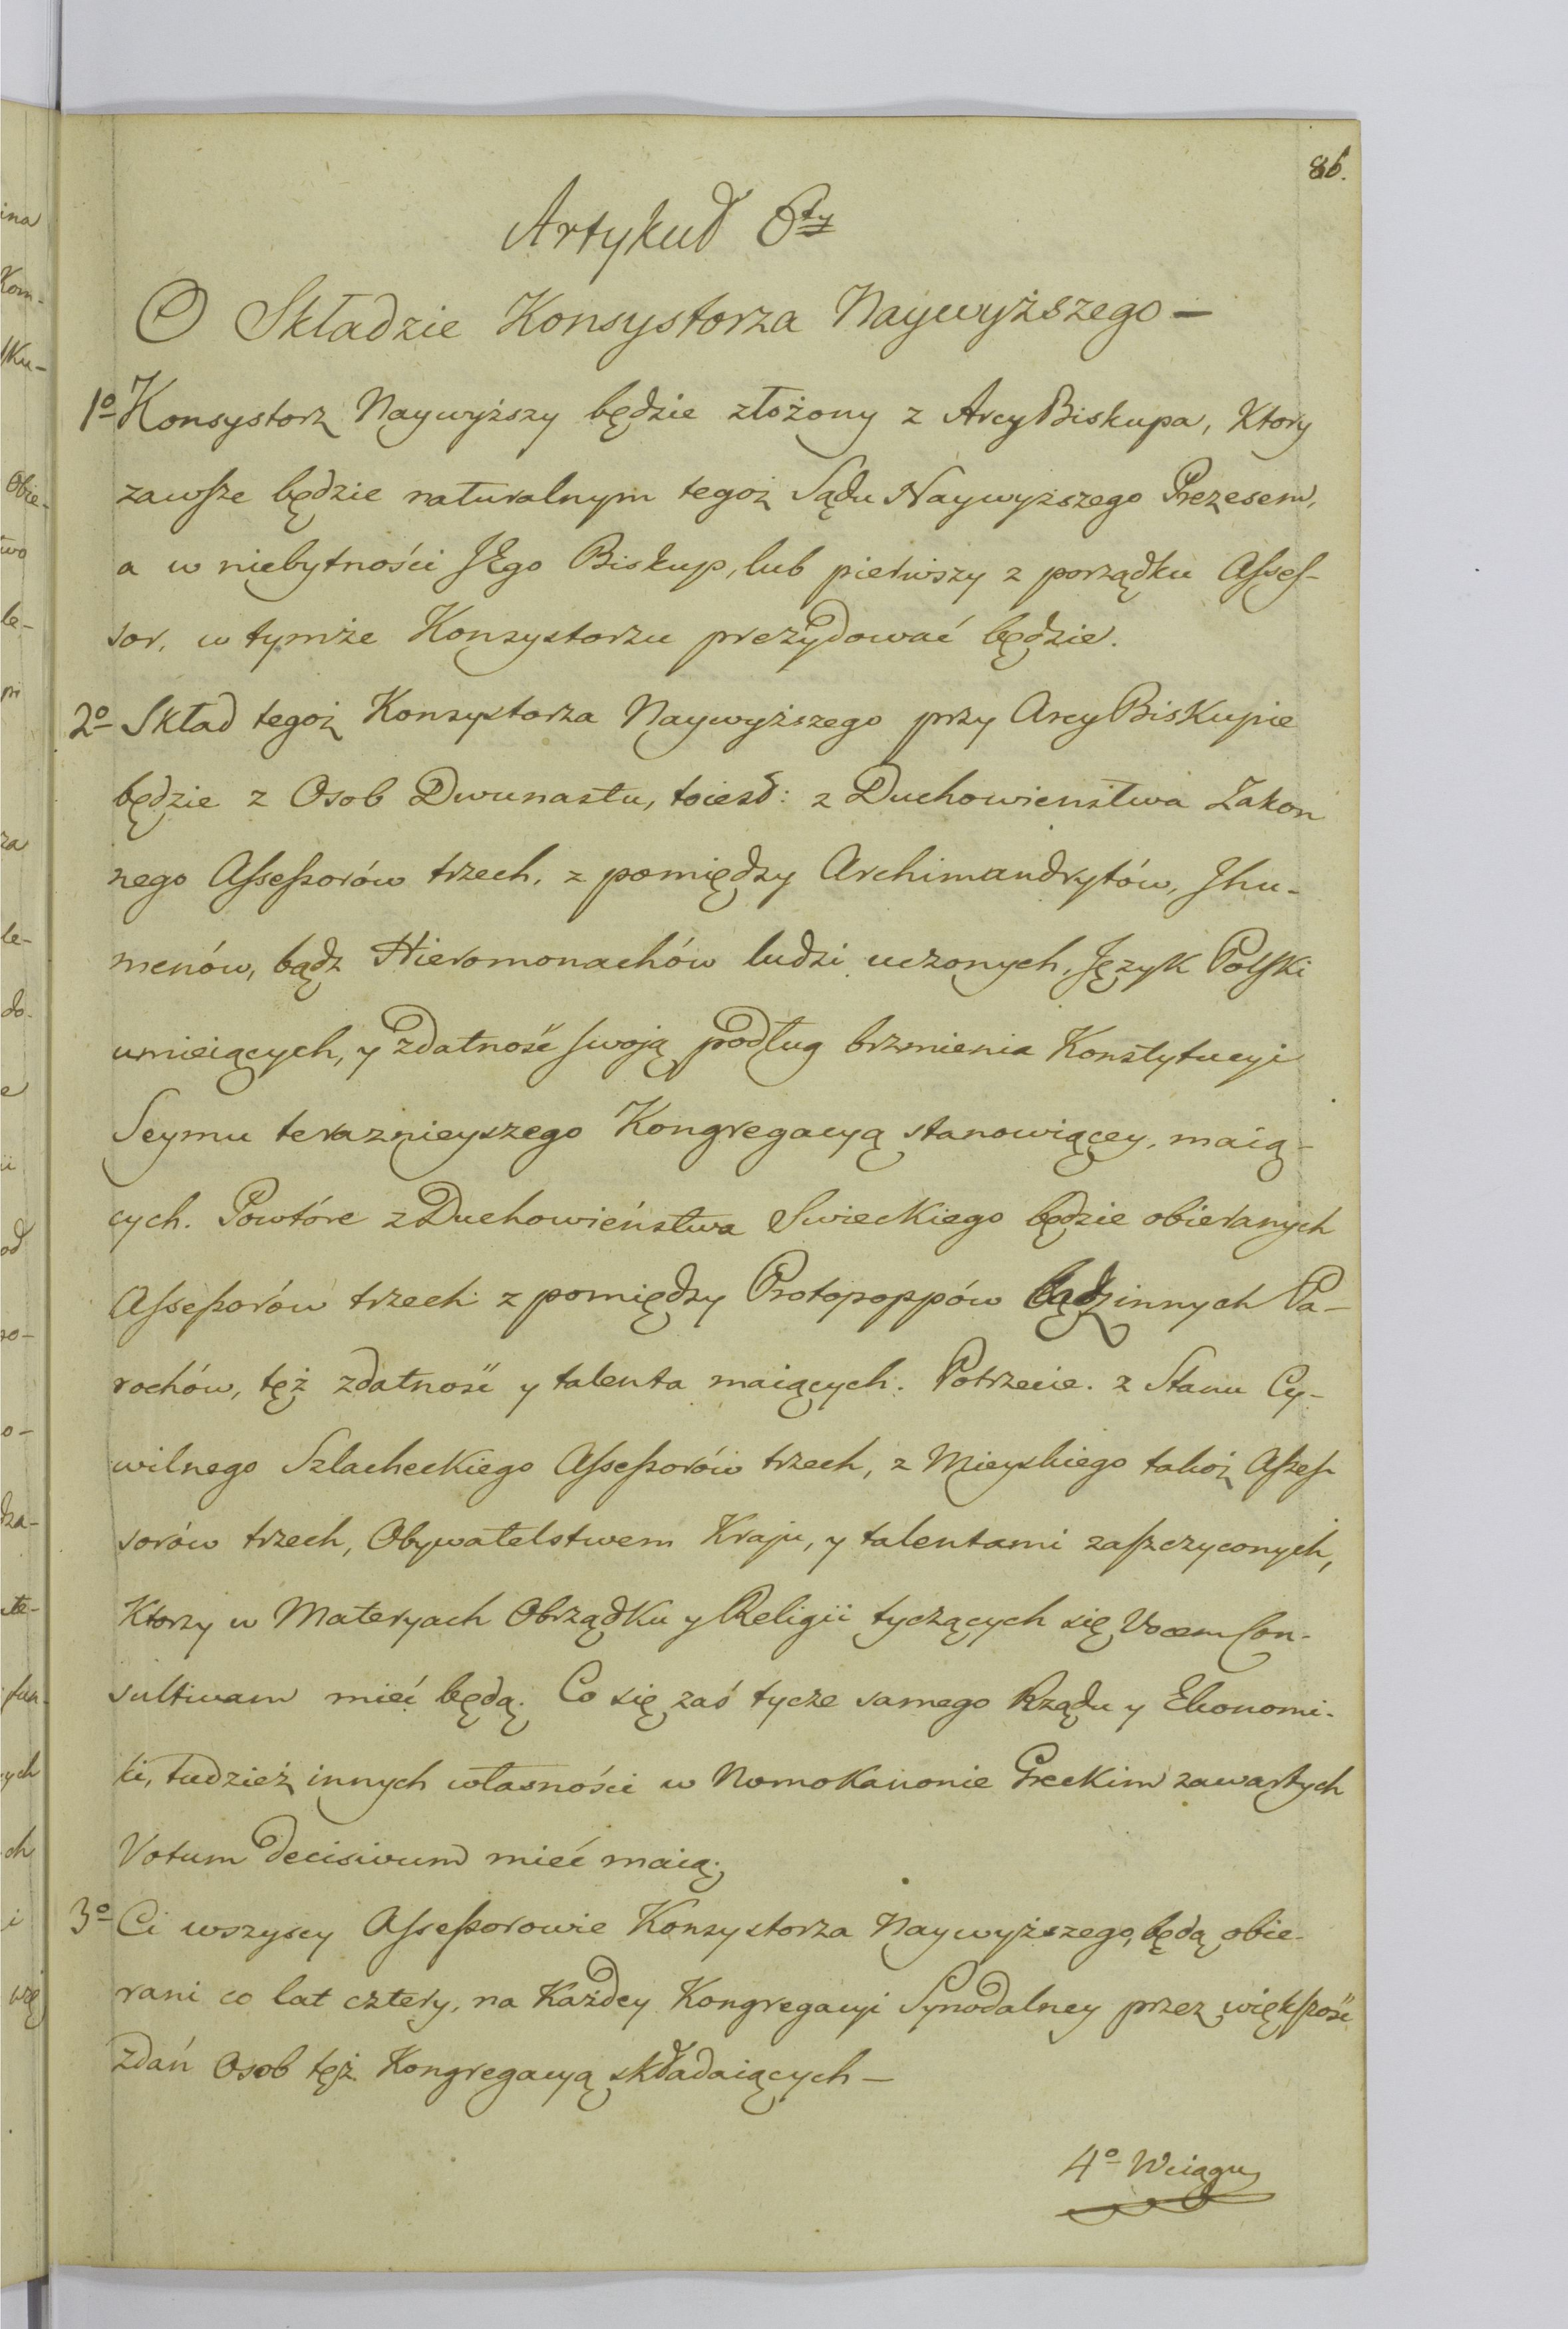 86.
Artykuł 6ty
O Składzie Konsystorza Naywyższego —
1o Konsystorz Naywyższy będzie złożony z ArcyBiskupa, Ktory
zawsze będzie naturalnym tegoż Sądu Naywyższego Prezesem,
a w niebytności JEgo Biskup, lub pierwszy z porządku Asses-
sor, w tymże Konsystorzu prezydować będzie.
2o Skład tegoż Konsystorza Naywyższego przy ArcyBiskupie
będzie z Osob Dwunastu, toiest: z Duchowieństwa Zakon
nego Assessorów trzech, z pomiędzy Archimandrytów, Jhu-
menów, bądz Hieromonachów ludzi uczonych, Język Polski
umieiących, y zdatność swoją podług brzmienia Konstytucyi
Seymu teraznieyszego Kongregacyą stanowiącey, maią-
cych. Powtóre z Duchowieństwa Swieckiego będzie obieranych
Assessorów trzech z pomiędzy Protopoppów bądz innych Pa-
rochów, tęż zdatność y talenta maiących. Potrzecie. z Stanu Cy-
wilnego Szlacheckiego Assessorów trzech, z Mieyskiego takoż Asses-
sorów trzech, Obywatelstwem Kraju, y talentami zaszczyconych,
Ktorzy w Materyach Obrządku y Religii tyczących się Vocem Con-
sultivam mieć będą. Co się zaś tycze samego Rządu y Ekonomi-
ki, tudzież innych własności w Nomokanonie Greckim zawartych
Votum Decisivum mieć maią.
3o Ci wszyscy Assessorowie Konsystorza Naywyższego, będą obie-
rani co lat cztery, na Każdey Kongregacyi Synodalney przez większość
zdań Osob tęż Kongregacyą składaiących —
4o Wciągu